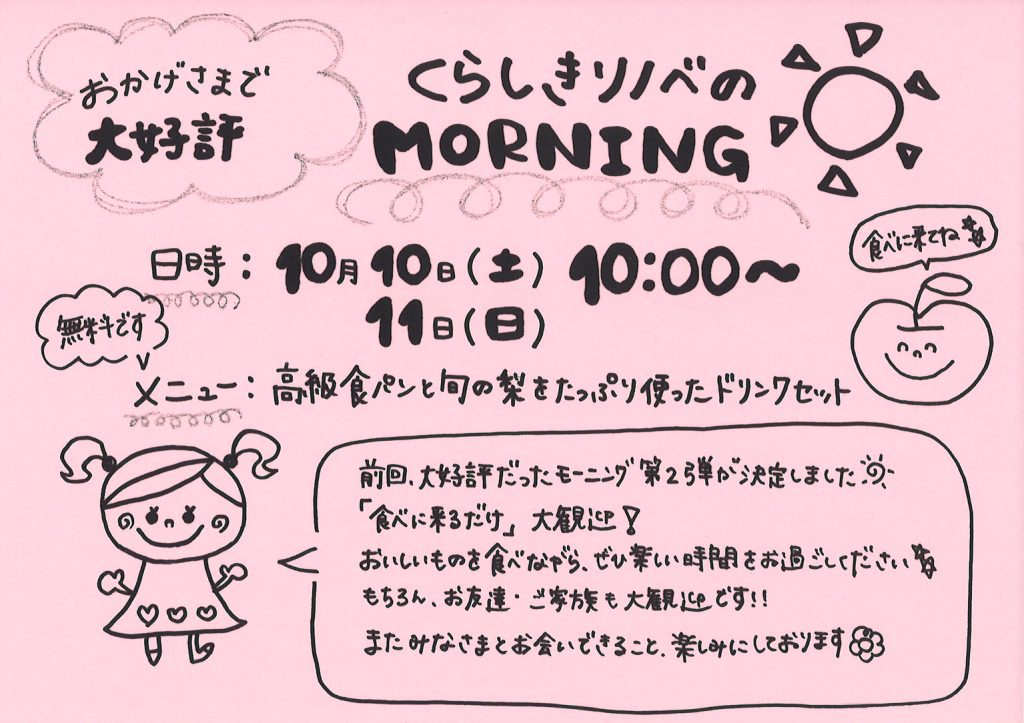 おかげさまで
大好評
くらしきリノベの
MORNING
日時：10月10日(土) 10:00～
11日(日)
食べに来てね
無料です
メニュー：高級食パンと旬の梨をたっぷり使ったドリンクセット
前回、大好評だったモーニング第2弾が決定しました
「食べに来るだけ」大観迎！
おいしいものを食べながら、ぜひ楽しい時間をお過ごしください
もちろん、お友達・ご家族も大観迎です!!
またみなさまとお会いできること、楽しみにしております